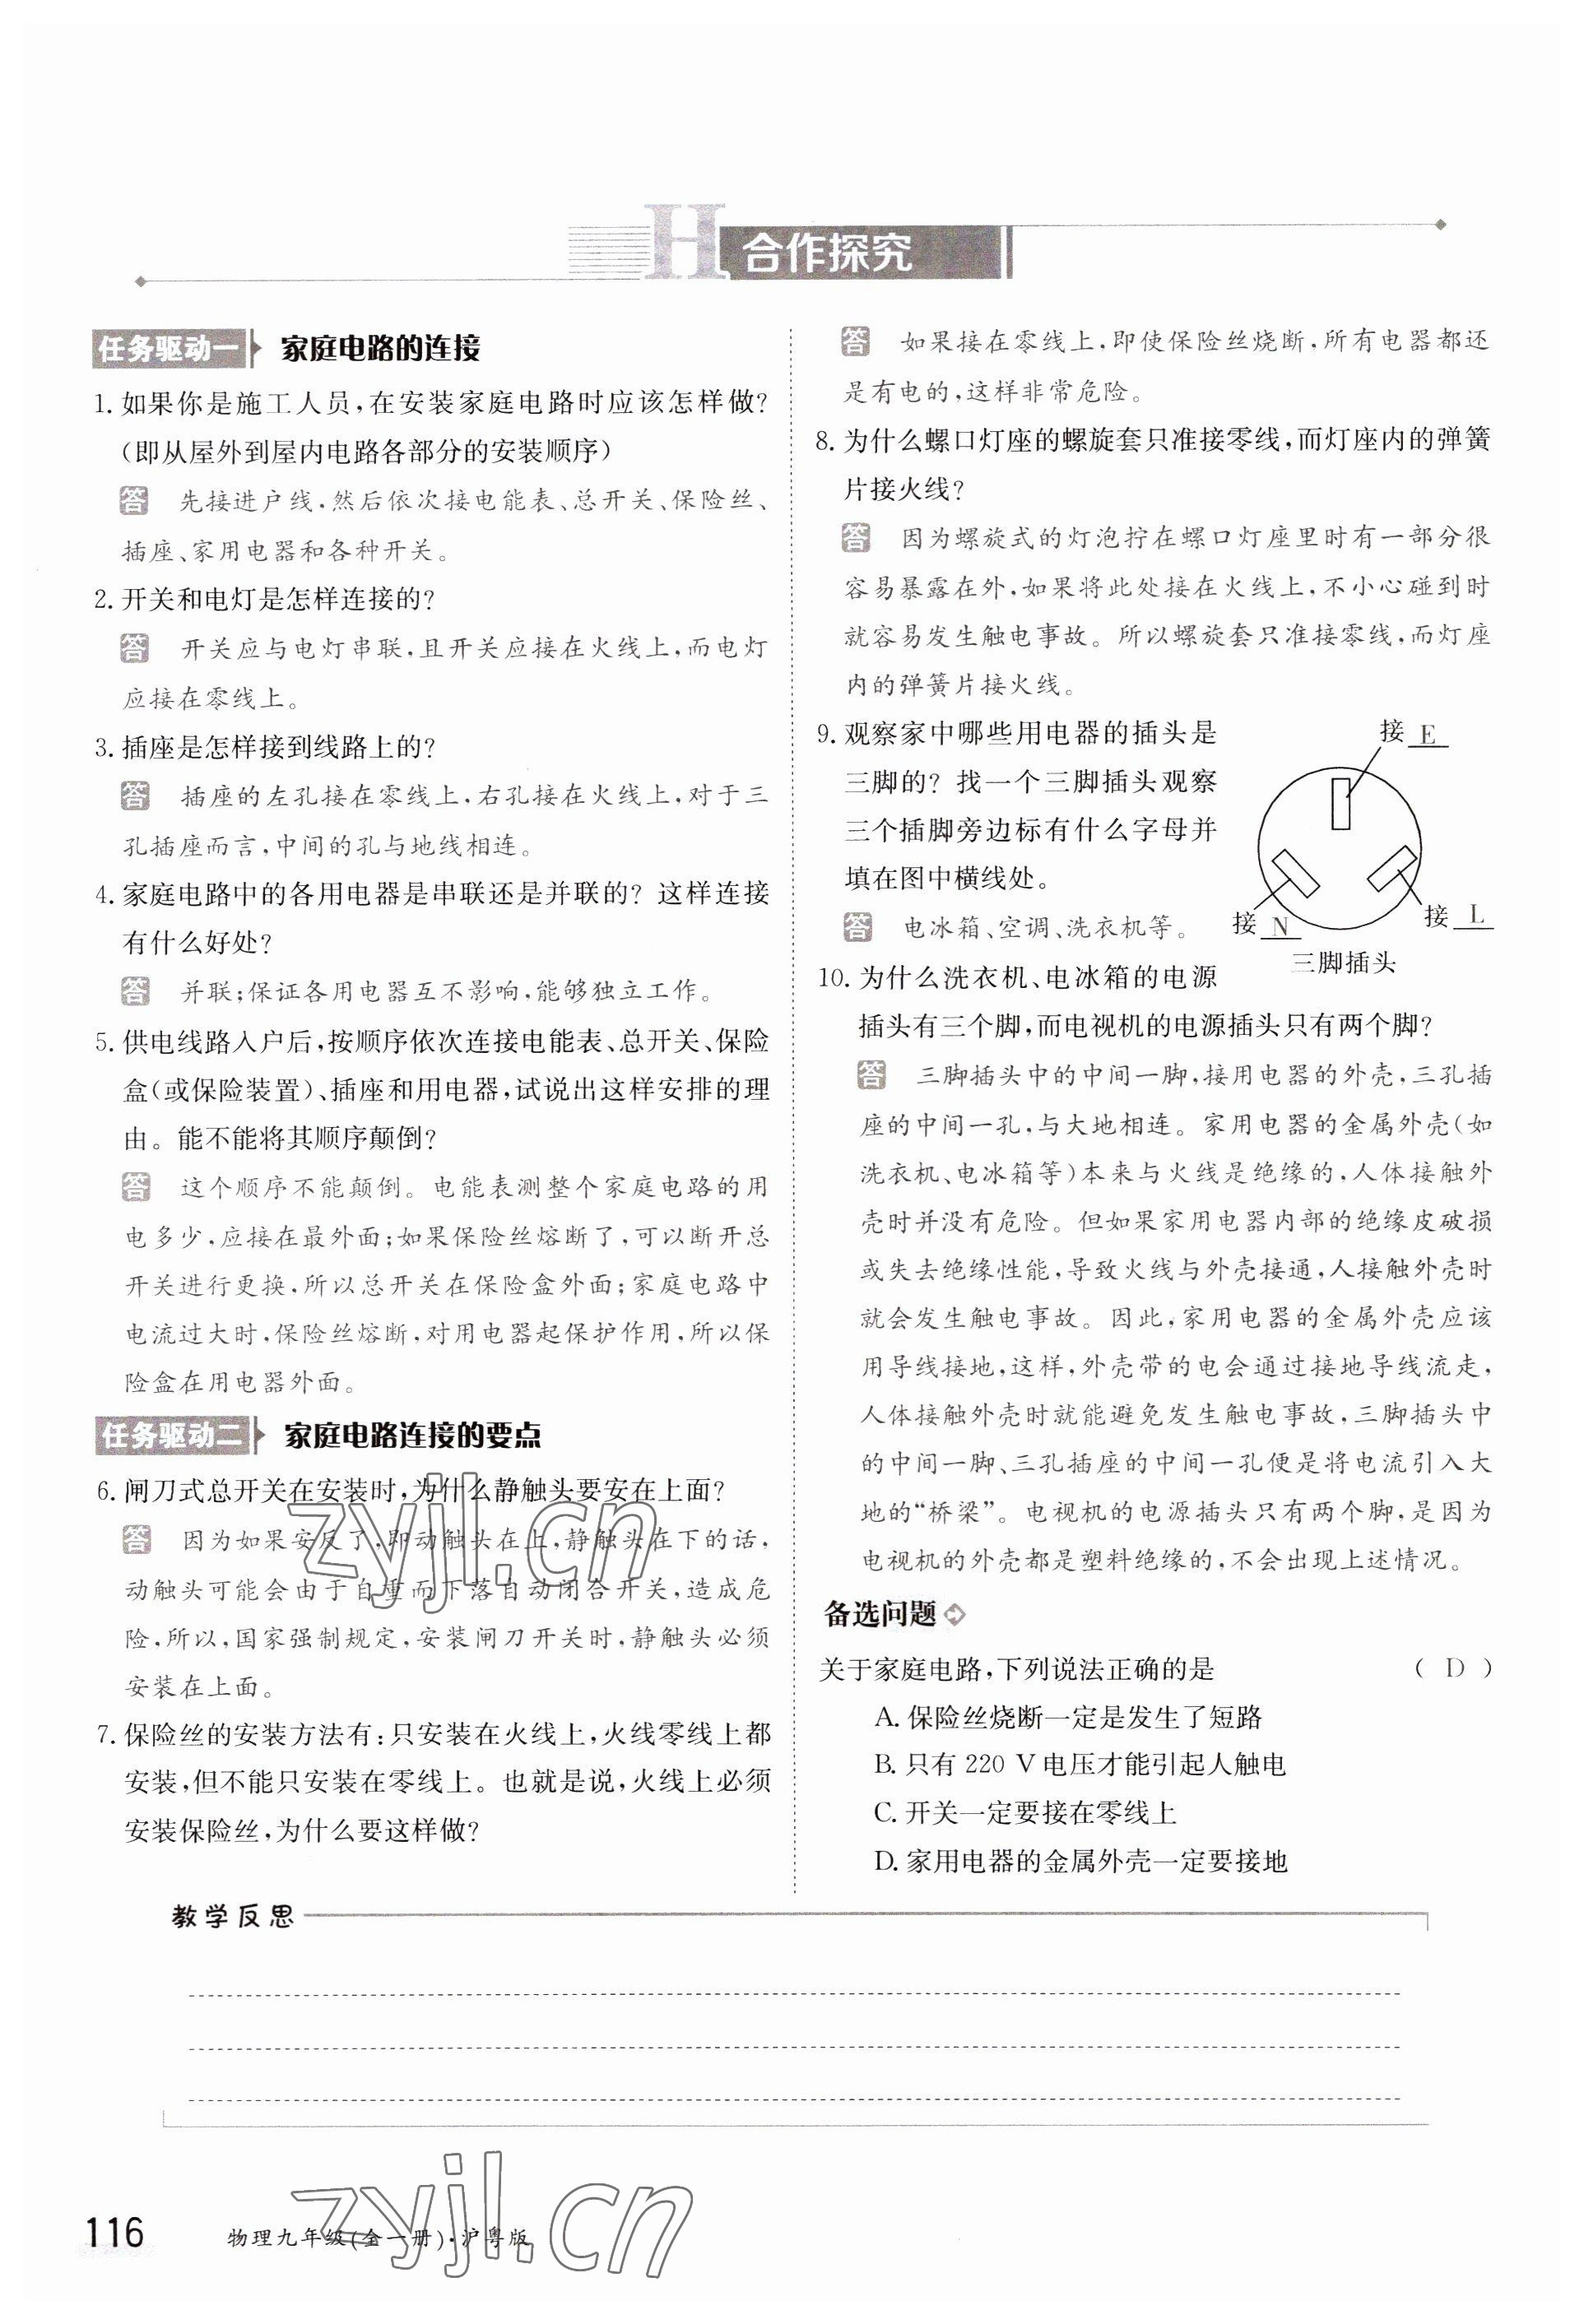 H 合作探究
任务驱动一 家庭电路的连接
1. 如果你是施工人员,在安装家庭电路时应该怎样做?
(即从屋外到屋内电路各部分的安装顺序)
答 先接进户线,然后依次接电能表、总开关、保险丝、
插座、家用电器和各种开关。
2. 开关和电灯是怎样连接的?
答 开关应与电灯串联,且开关应接在火线上,而电灯
应接在零线上。
3. 插座是怎样接到线路上的?
答 插座的左孔接在零线上,右孔接在火线上,对于三
孔插座而言,中间的孔与地线相连。
4. 家庭电路中的各用电器是串联还是并联的? 这样连接
有什么好处?
答 并联;保证各用电器互不影响,能够独立工作。
5. 供电线路入户后,按顺序依次连接电能表、总开关、保险
盒(或保险装置)、插座和用电器,试说出这样安排的理
由。能不能将其顺序颠倒?
答 这个顺序不能颠倒。电能表测整个家庭电路的用
电多少,应接在最外面;如果保险丝熔断了,可以断开总
开关进行更换,所以总开关在保险盒外面;家庭电路中
电流过大时,保险丝熔断,对用电器起保护作用,所以保
险盒在用电器外面。
任务驱动二 家庭电路连接的要点
6. 闸刀式总开关在安装时,为什么静触头要安在上面?
答 因为如果安反了,即动触头在上,静触头在下的话,
动触头可能会由于自重而下落自动闭合开关,造成危
险,所以,国家强制规定,安装闸刀开关时,静触头必须
安装在上面。
7. 保险丝的安装方法有:只安装在火线上,火线零线上都
安装,但不能只安装在零线上。也就是说,火线上必须
安装保险丝,为什么要这样做?
答 如果接在零线上,即使保险丝烧断,所有电器都还
是有电的,这样非常危险。
8. 为什么螺口灯座的螺旋套只准接零线,而灯座内的弹簧
片接火线?
答 因为螺旋式的灯泡拧在螺口灯座里时有一部分很
容易暴露在外,如果将此处接在火线上,不小心碰到时
就容易发生触电事故。所以螺旋套只准接零线,而灯座
内的弹簧片接火线。
9. 观察家中哪些用电器的插头是
三脚的? 找一个三脚插头观察
三个插脚旁边标有什么字母并
填在图中横线处。
答 电冰箱、空调、洗衣机等。
接 E
接 N
接 L
三脚插头
10. 为什么洗衣机、电冰箱的电源
插头有三个脚,而电视机的电源插头只有两个脚?
答 三脚插头中的中间一脚,接用电器的外壳,三孔插
座的中间一孔,与大地相连。家用电器的金属外壳(如
洗衣机、电冰箱等)本来与火线是绝缘的,人体接触外
壳时并没有危险。但如果家用电器内部的绝缘皮破损
或失去绝缘性能,导致火线与外壳接通,人接触外壳时
就会发生触电事故。因此,家用电器的金属外壳应该
用导线接地,这样,外壳带的电会通过接地导线流走,
人体接触外壳时就能避免发生触电事故,三脚插头中
的中间一脚、三孔插座的中间一孔便是将电流引入大
地的“桥梁”。电视机的电源插头只有两个脚,是因为
电视机的外壳都是塑料绝缘的,不会出现上述情况。
备选问题
关于家庭电路,下列说法正确的是 ( D )
A. 保险丝烧断一定是发生了短路
B. 只有 220 V 电压才能引起人触电
C. 开关一定要接在零线上
D. 家用电器的金属外壳一定要接地
zyjl.cn
教学反思
zyjl.cn
116 物理九年级(全一册)·沪粤版